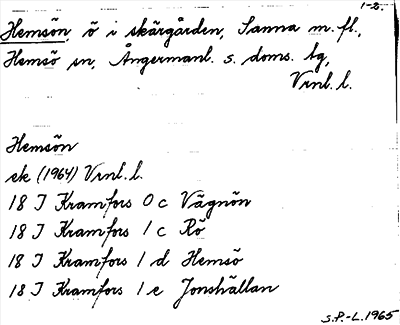 1-2.
Hemsön, ö i skärgården, Sanna m. fl.,
Hemsö sn, Ångermanl. s. doms. tg,
Vrnl. l.
Hemsön
ek (1964) Vrnl. l.
18 J Kramfors 0 c Vägnön
18 J Kramfors 1 c Rö
18 J Kramfors 1 d Hemsö
18 J Kramfors 1 e Jonshällan
S.P.-L. 1965